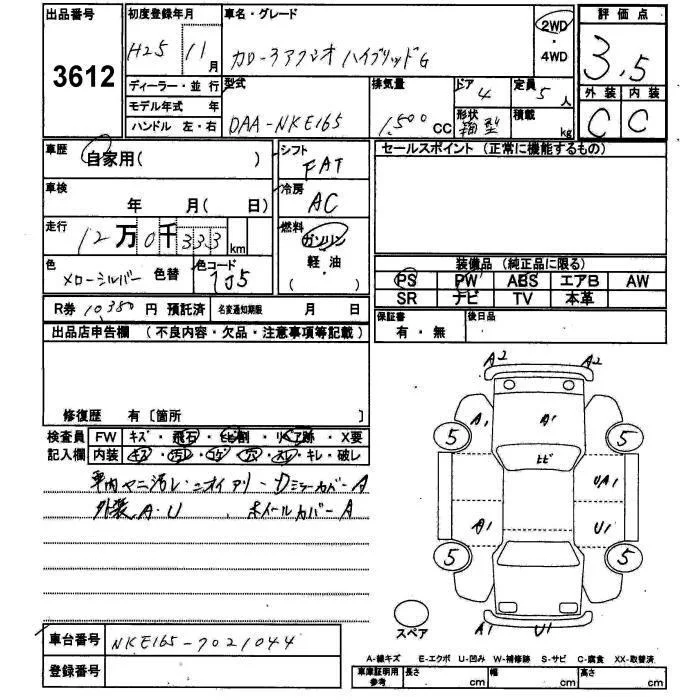 出品番号
3612
初度登録年月
H25 11月
ディーラー・並行
モデル年式 年
ハンドル 左・右
車名・グレード
カローラアクシオ ハイブリッドG
2WD
・
4WD
評価点
3.5
外装 内装
C C
型式
DAA-NKE165
排気量
1,500 CC
ドア
4
定員
5人
形状
箱型
積載
kg
車歴
自家用( )
シフト
FAT
車検
年 月( 日)
冷房
AC
走行
12万0千333km
燃料
ガソリン
軽・油
( )
色
メローシルバー 色替
色コード
1J5
R券 10,380 円 預託済 名変通知期限 月 日
セールスポイント (正常に機能するもの)
装備品 (純正品に限る)
PS PW ABS エアB AW
SR ナビ TV 本革
保証書
有・無
後日品
出品店申告欄 (不良内容・欠品・注意事項等記載)
修復歴 有〔箇所 〕
検査員 FW キズ・飛石・ヒビ割・リペア跡・X要
記入欄 内装 キズ・汚レ・コゲ・穴・スレ・キレ・破レ
車内マニ汚レ・ニオイアリ
ミラーカバーA
外装A・U ホイールカバーA
車台番号 NKE165-7021044
登録番号
A2 A2
A1 A1
5 5
ヒビ
UA1
A1 U1
5 5
スペア
A1 U1
A-線キズ E-エクボ U-凹み W-補修跡 S-サビ C-腐食 XX-取替済
車庫証明用
参考
長さ cm 幅 cm 高さ cm